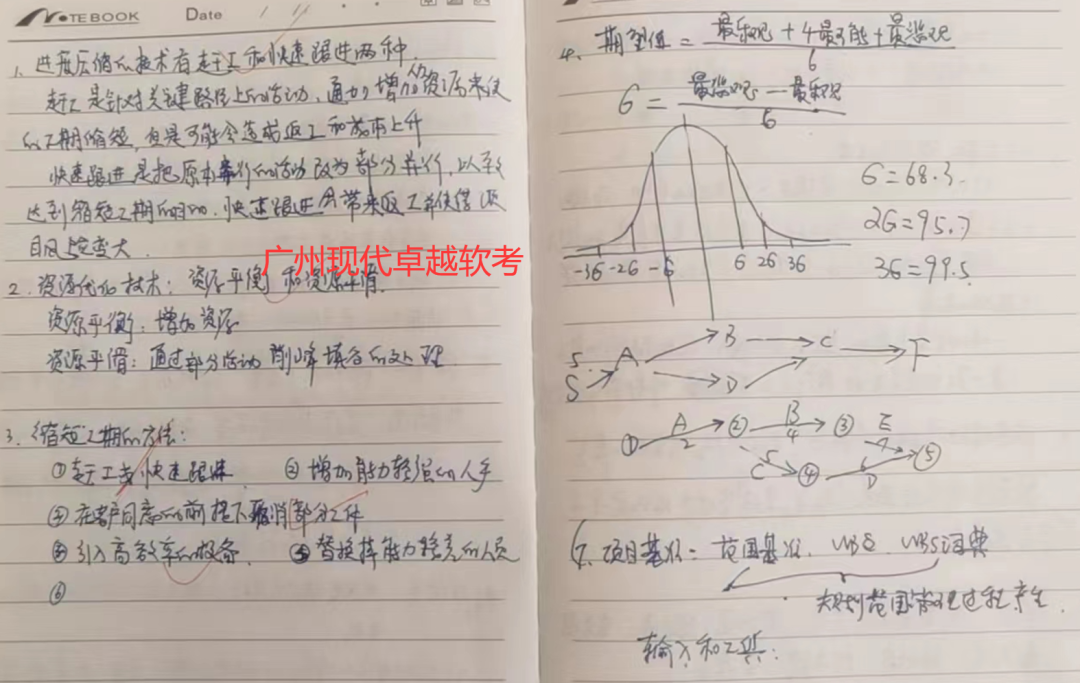 NOTEBOOK Date
1. 进度压缩的技术有赶工和快速跟进两种.
赶工是针对关键路径上的活动、通过增加资源来使
的工期缩短, 但是可能会造成返工和成本上升
快速跟进是把原本串行的活动改为部分并行, 以至
达到缩短工期的目的. 快速跟进会带来返工并使得项
目风险变大.
广州现代卓越软考
2. 资源优化技术: 资源平衡和资源平滑.
资源平衡: 增加资源
资源平滑: 通过部分活动削峰填谷的处理
3. 缩短工期的方法:
①赶工或快速跟进 ②增加能力较强的人手
③在客户同意的前提下取消部分工作
④引入高效率的设备 ⑤替换掉能力较差的人员
⑥
4. 期望值 = 最乐观 + 4最可能 + 最悲观
6
6 = 最悲观 - 最乐观
6
6 = 68.3
26 = 95.7
36 = 99.5
-36 -26 -6 6 26 36
B C
5. A F
S D
A B E
① 2 ② 4 ③ 4 ⑤
C 5 ④ 6 D
项目基准 = 范围基准、WBS、WBS词典
规划范围管理过程产生
输入和工具: